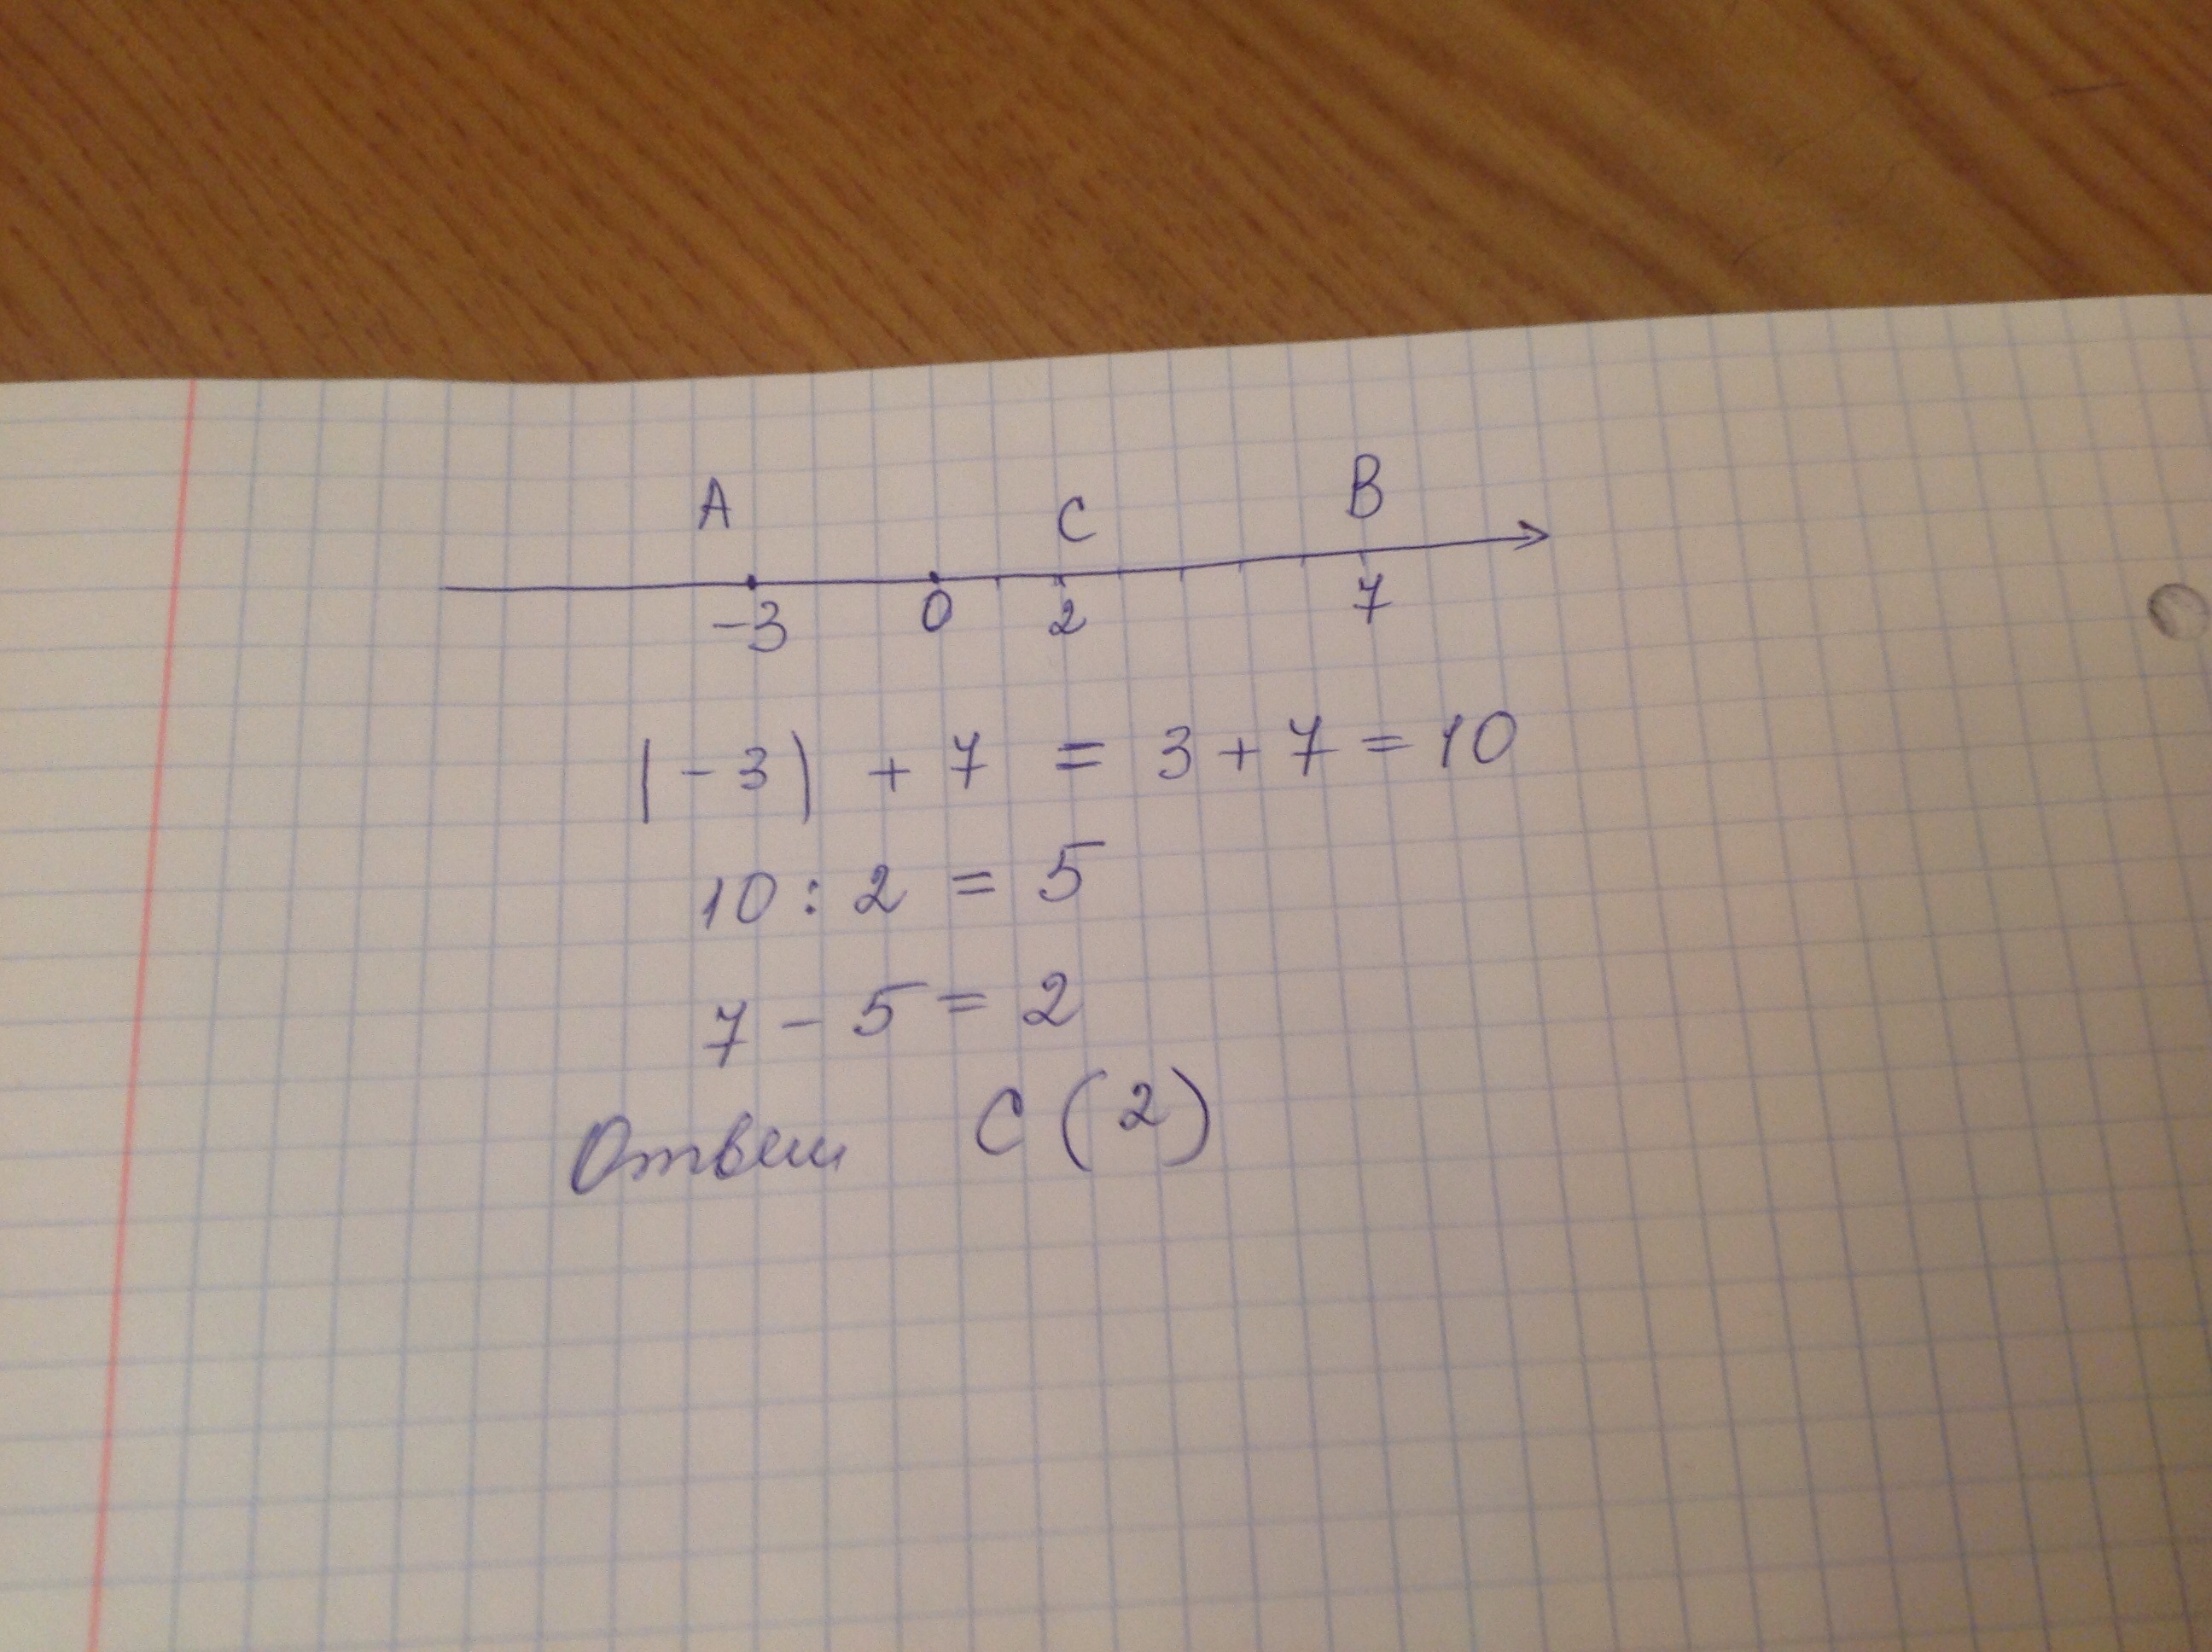 A C B
-3 0 2 7
|-3| + 7 = 3 + 7 = 10
10 : 2 = 5
7 - 5 = 2
Ответ C (2)